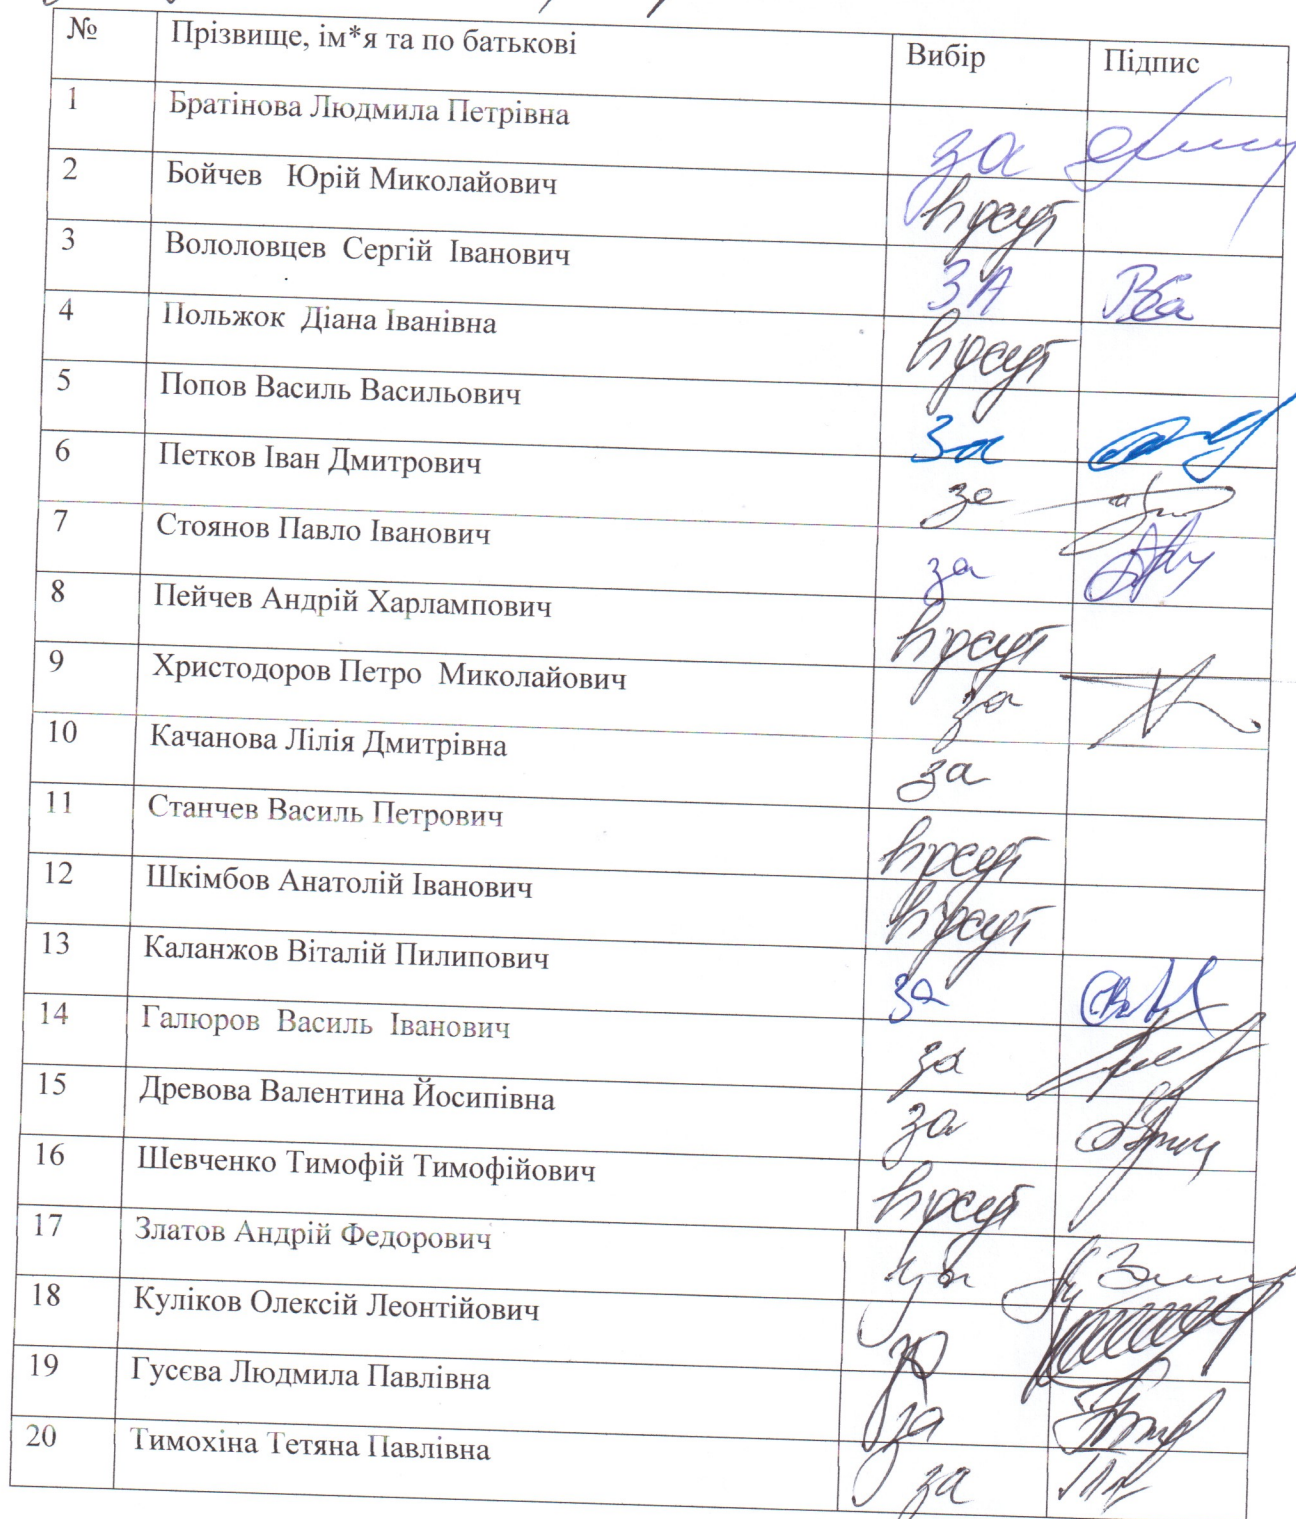 № Прізвище, ім*я та по батькові Вибір Підпис
1 Братінова Людмила Петрівна за
2 Бойчев Юрій Миколайович відсут
3 Вололовцев Сергій Іванович ЗА
4 Польжок Діана Іванівна відсут
5 Попов Василь Васильович За
6 Петков Іван Дмитрович за
7 Стоянов Павло Іванович за
8 Пейчев Андрій Харлампович відсут
9 Христодоров Петро Миколайович за
10 Качанова Лілія Дмитрівна за
11 Станчев Василь Петрович відсут
12 Шкімбов Анатолій Іванович відсут
13 Каланжов Віталій Пилипович за
14 Галюров Василь Іванович за
15 Древова Валентина Йосипівна за
16 Шевченко Тимофій Тимофійович відсут
17 Златов Андрій Федорович
18 Куліков Олексій Леонтійович
19 Гусєва Людмила Павлівна за
20 Тимохіна Тетяна Павлівна за